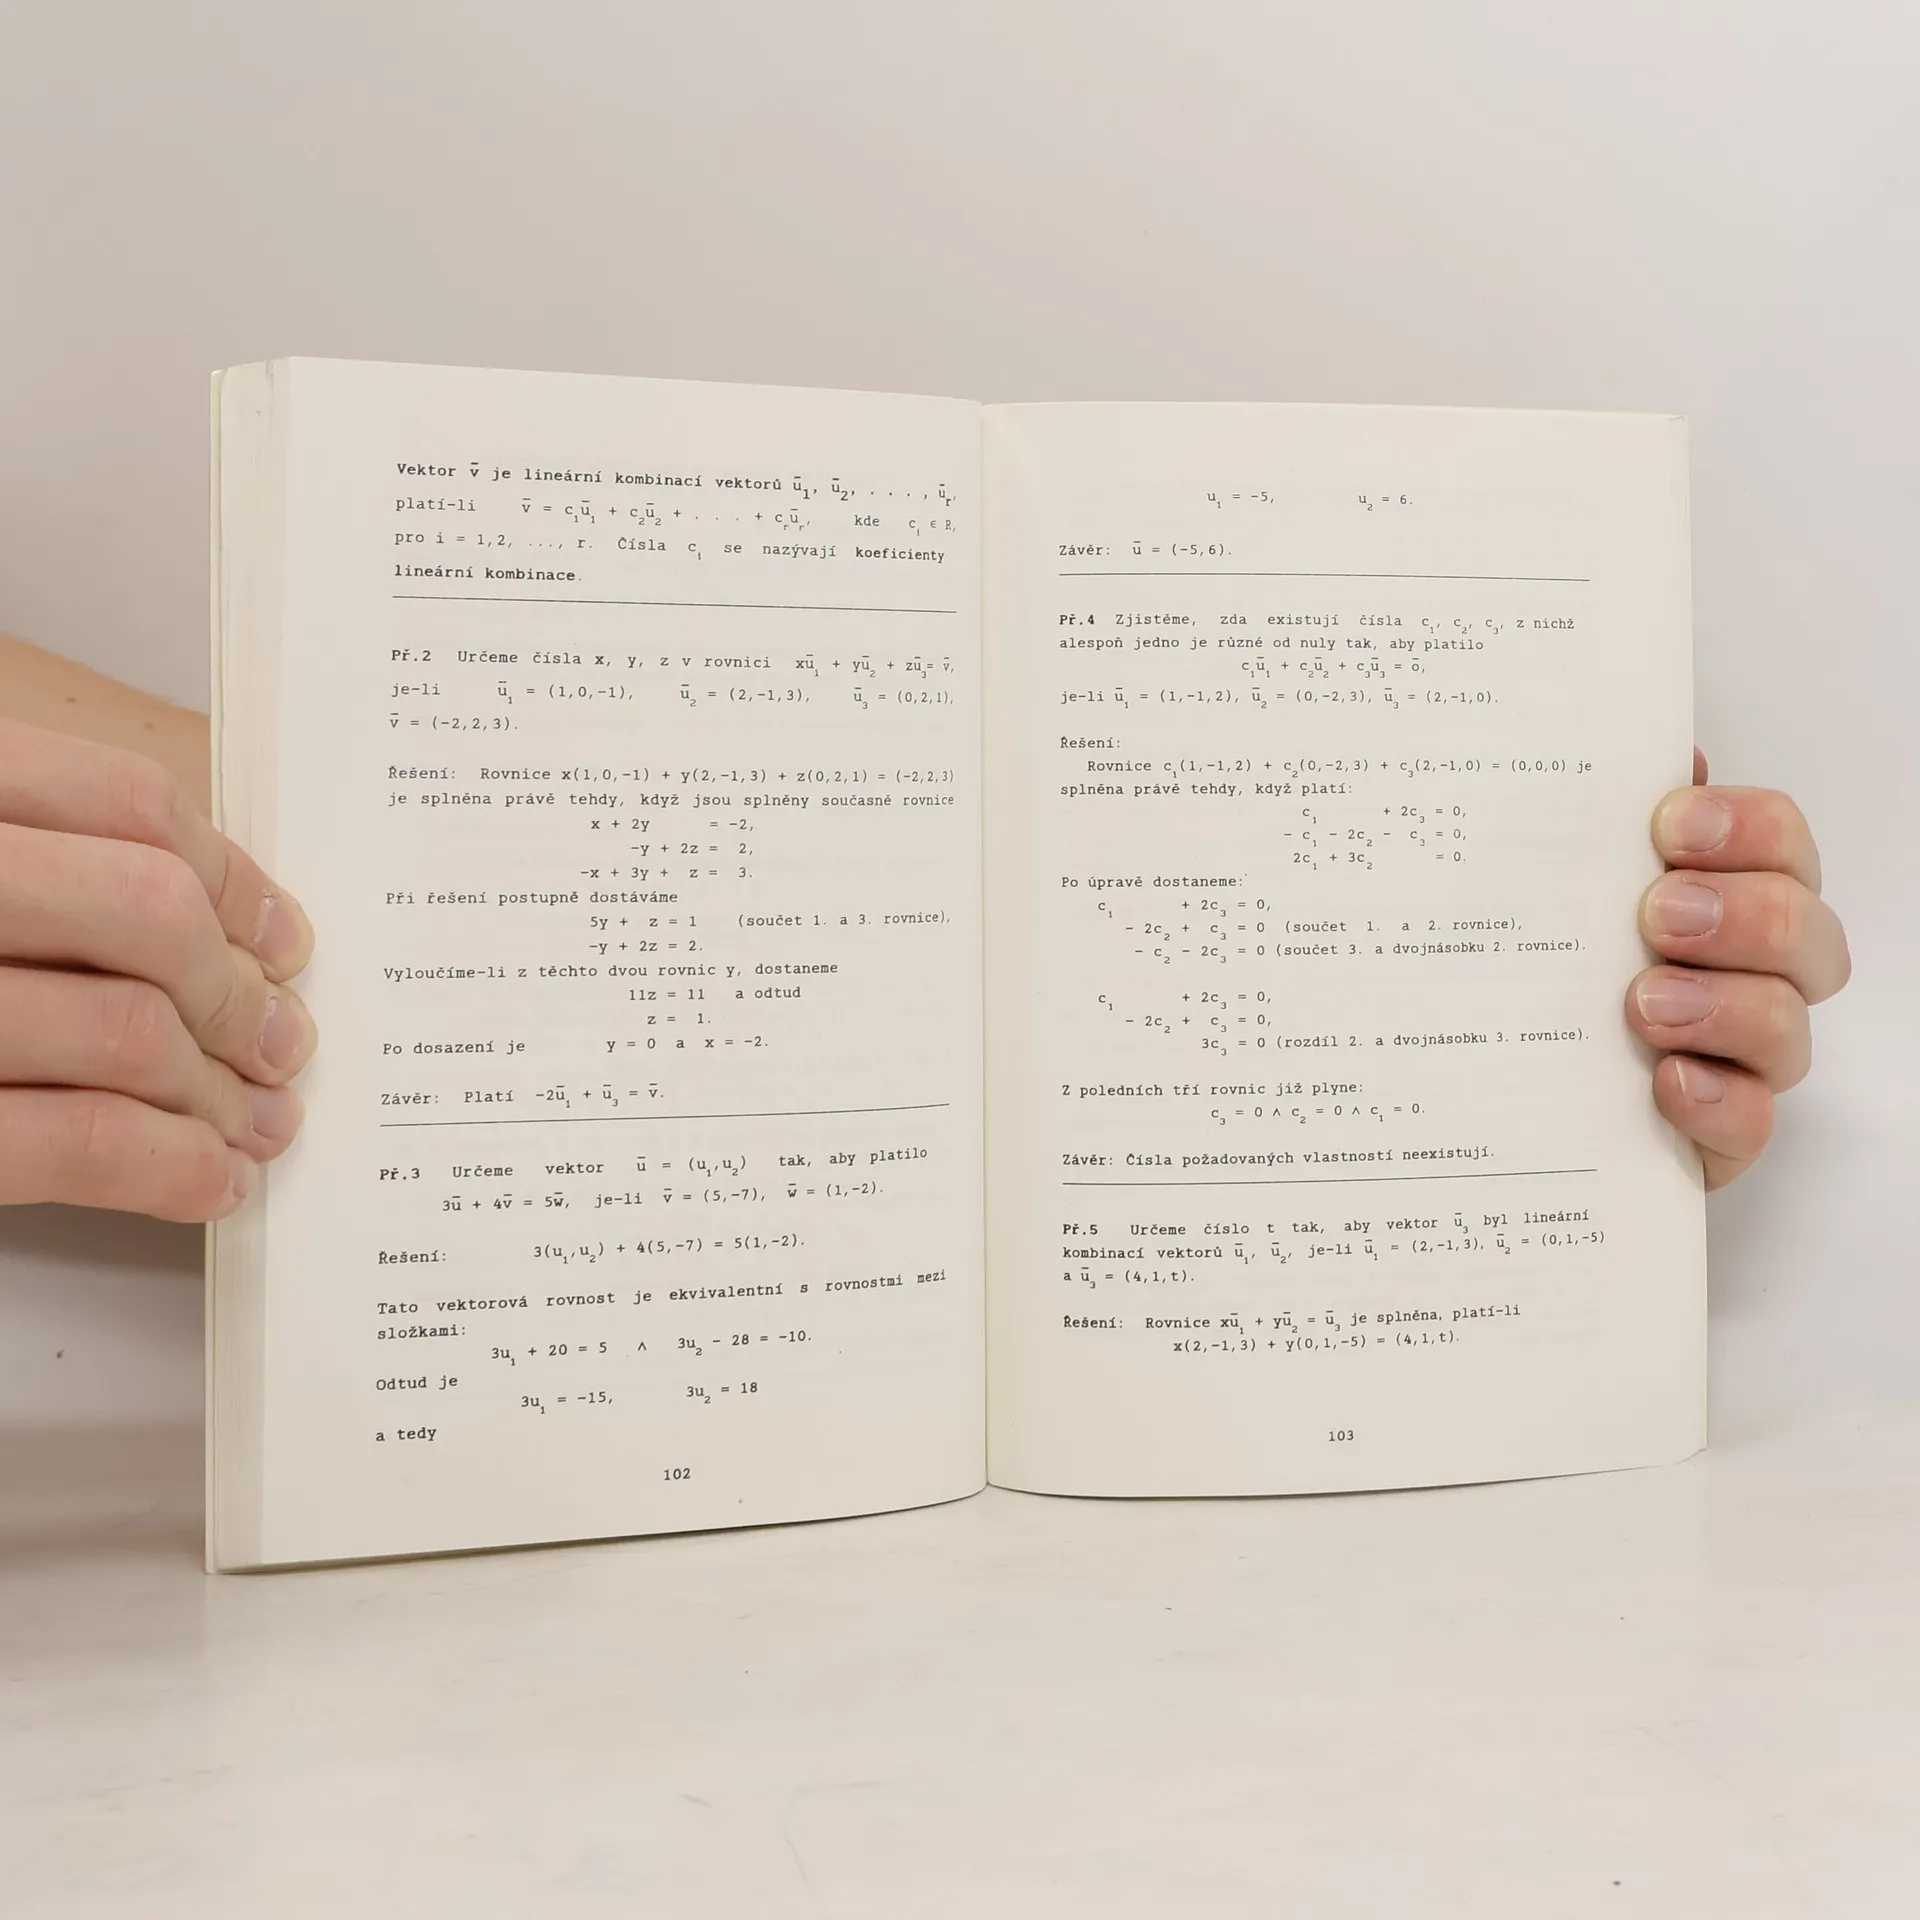 Vektor v̄ je lineární kombinací vektorů ū₁, ū₂, . . . , ūᵣ,
platí-li v̄ = c₁ū₁ + c₂ū₂ + . . . + cᵣūᵣ, kde cᵢ ∈ R,
pro i = 1,2, ..., r. Čísla cᵢ se nazývají koeficienty
lineární kombinace.
Př.2 Určeme čísla x, y, z v rovnici xū₁ + yū₂ + zū₃= v̄,
je-li ū₁ = (1,0,-1), ū₂ = (2,-1,3), ū₃ = (0,2,1),
v̄ = (-2,2,3).
Řešení: Rovnice x(1,0,-1) + y(2,-1,3) + z(0,2,1) = (-2,2,3)
je splněna právě tehdy, když jsou splněny současně rovnice
x + 2y = -2,
-y + 2z = 2,
-x + 3y + z = 3.
Při řešení postupně dostáváme
5y + z = 1 (součet 1. a 3. rovnice),
-y + 2z = 2.
Vyloučíme-li z těchto dvou rovnic y, dostaneme
11z = 11 a odtud
z = 1.
Po dosazení je y = 0 a x = -2.
Závěr: Platí -2ū₁ + ū₃ = v̄.
Př.3 Určeme vektor ū = (u₁,u₂) tak, aby platilo
3ū + 4v̄ = 5w̄, je-li v̄ = (5,-7), w̄ = (1,-2).
Řešení: 3(u₁,u₂) + 4(5,-7) = 5(1,-2).
Tato vektorová rovnost je ekvivalentní s rovnostmi mezi
složkami:
3u₁ + 20 = 5 ∧ 3u₂ - 28 = -10.
Odtud je
3u₁ = -15, 3u₂ = 18
a tedy
102
u₁ = -5, u₂ = 6.
Závěr: ū = (-5,6).
Př.4 Zjistěme, zda existují čísla c₁, c₂, c₃, z nichž
alespoň jedno je různé od nuly tak, aby platilo
c₁ū₁ + c₂ū₂ + c₃ū₃ = ō,
je-li ū₁ = (1,-1,2), ū₂ = (0,-2,3), ū₃ = (2,-1,0).
Řešení:
Rovnice c₁(1,-1,2) + c₂(0,-2,3) + c₃(2,-1,0) = (0,0,0) je
splněna právě tehdy, když platí:
c₁ + 2c₃ = 0,
- c₁ - 2c₂ - c₃ = 0,
2c₁ + 3c₂ = 0.
Po úpravě dostaneme:
c₁ + 2c₃ = 0,
- 2c₂ + c₃ = 0 (součet 1. a 2. rovnice),
- c₂ - 2c₃ = 0 (součet 3. a dvojnásobku 2. rovnice).
c₁ + 2c₃ = 0,
- 2c₂ + c₃ = 0,
3c₃ = 0 (rozdíl 2. a dvojnásobku 3. rovnice).
Z poledních tří rovnic již plyne:
c₃ = 0 ∧ c₂ = 0 ∧ c₁ = 0.
Závěr: Čísla požadovaných vlastností neexistují.
Př.5 Určeme číslo t tak, aby vektor ū₃ byl lineární
kombinací vektorů ū₁, ū₂, je-li ū₁ = (2,-1,3), ū₂ = (0,1,-5)
a ū₃ = (4,1,t).
Řešení: Rovnice xū₁ + yū₂ = ū₃ je splněna, platí-li
x(2,-1,3) + y(0,1,-5) = (4,1,t).
103